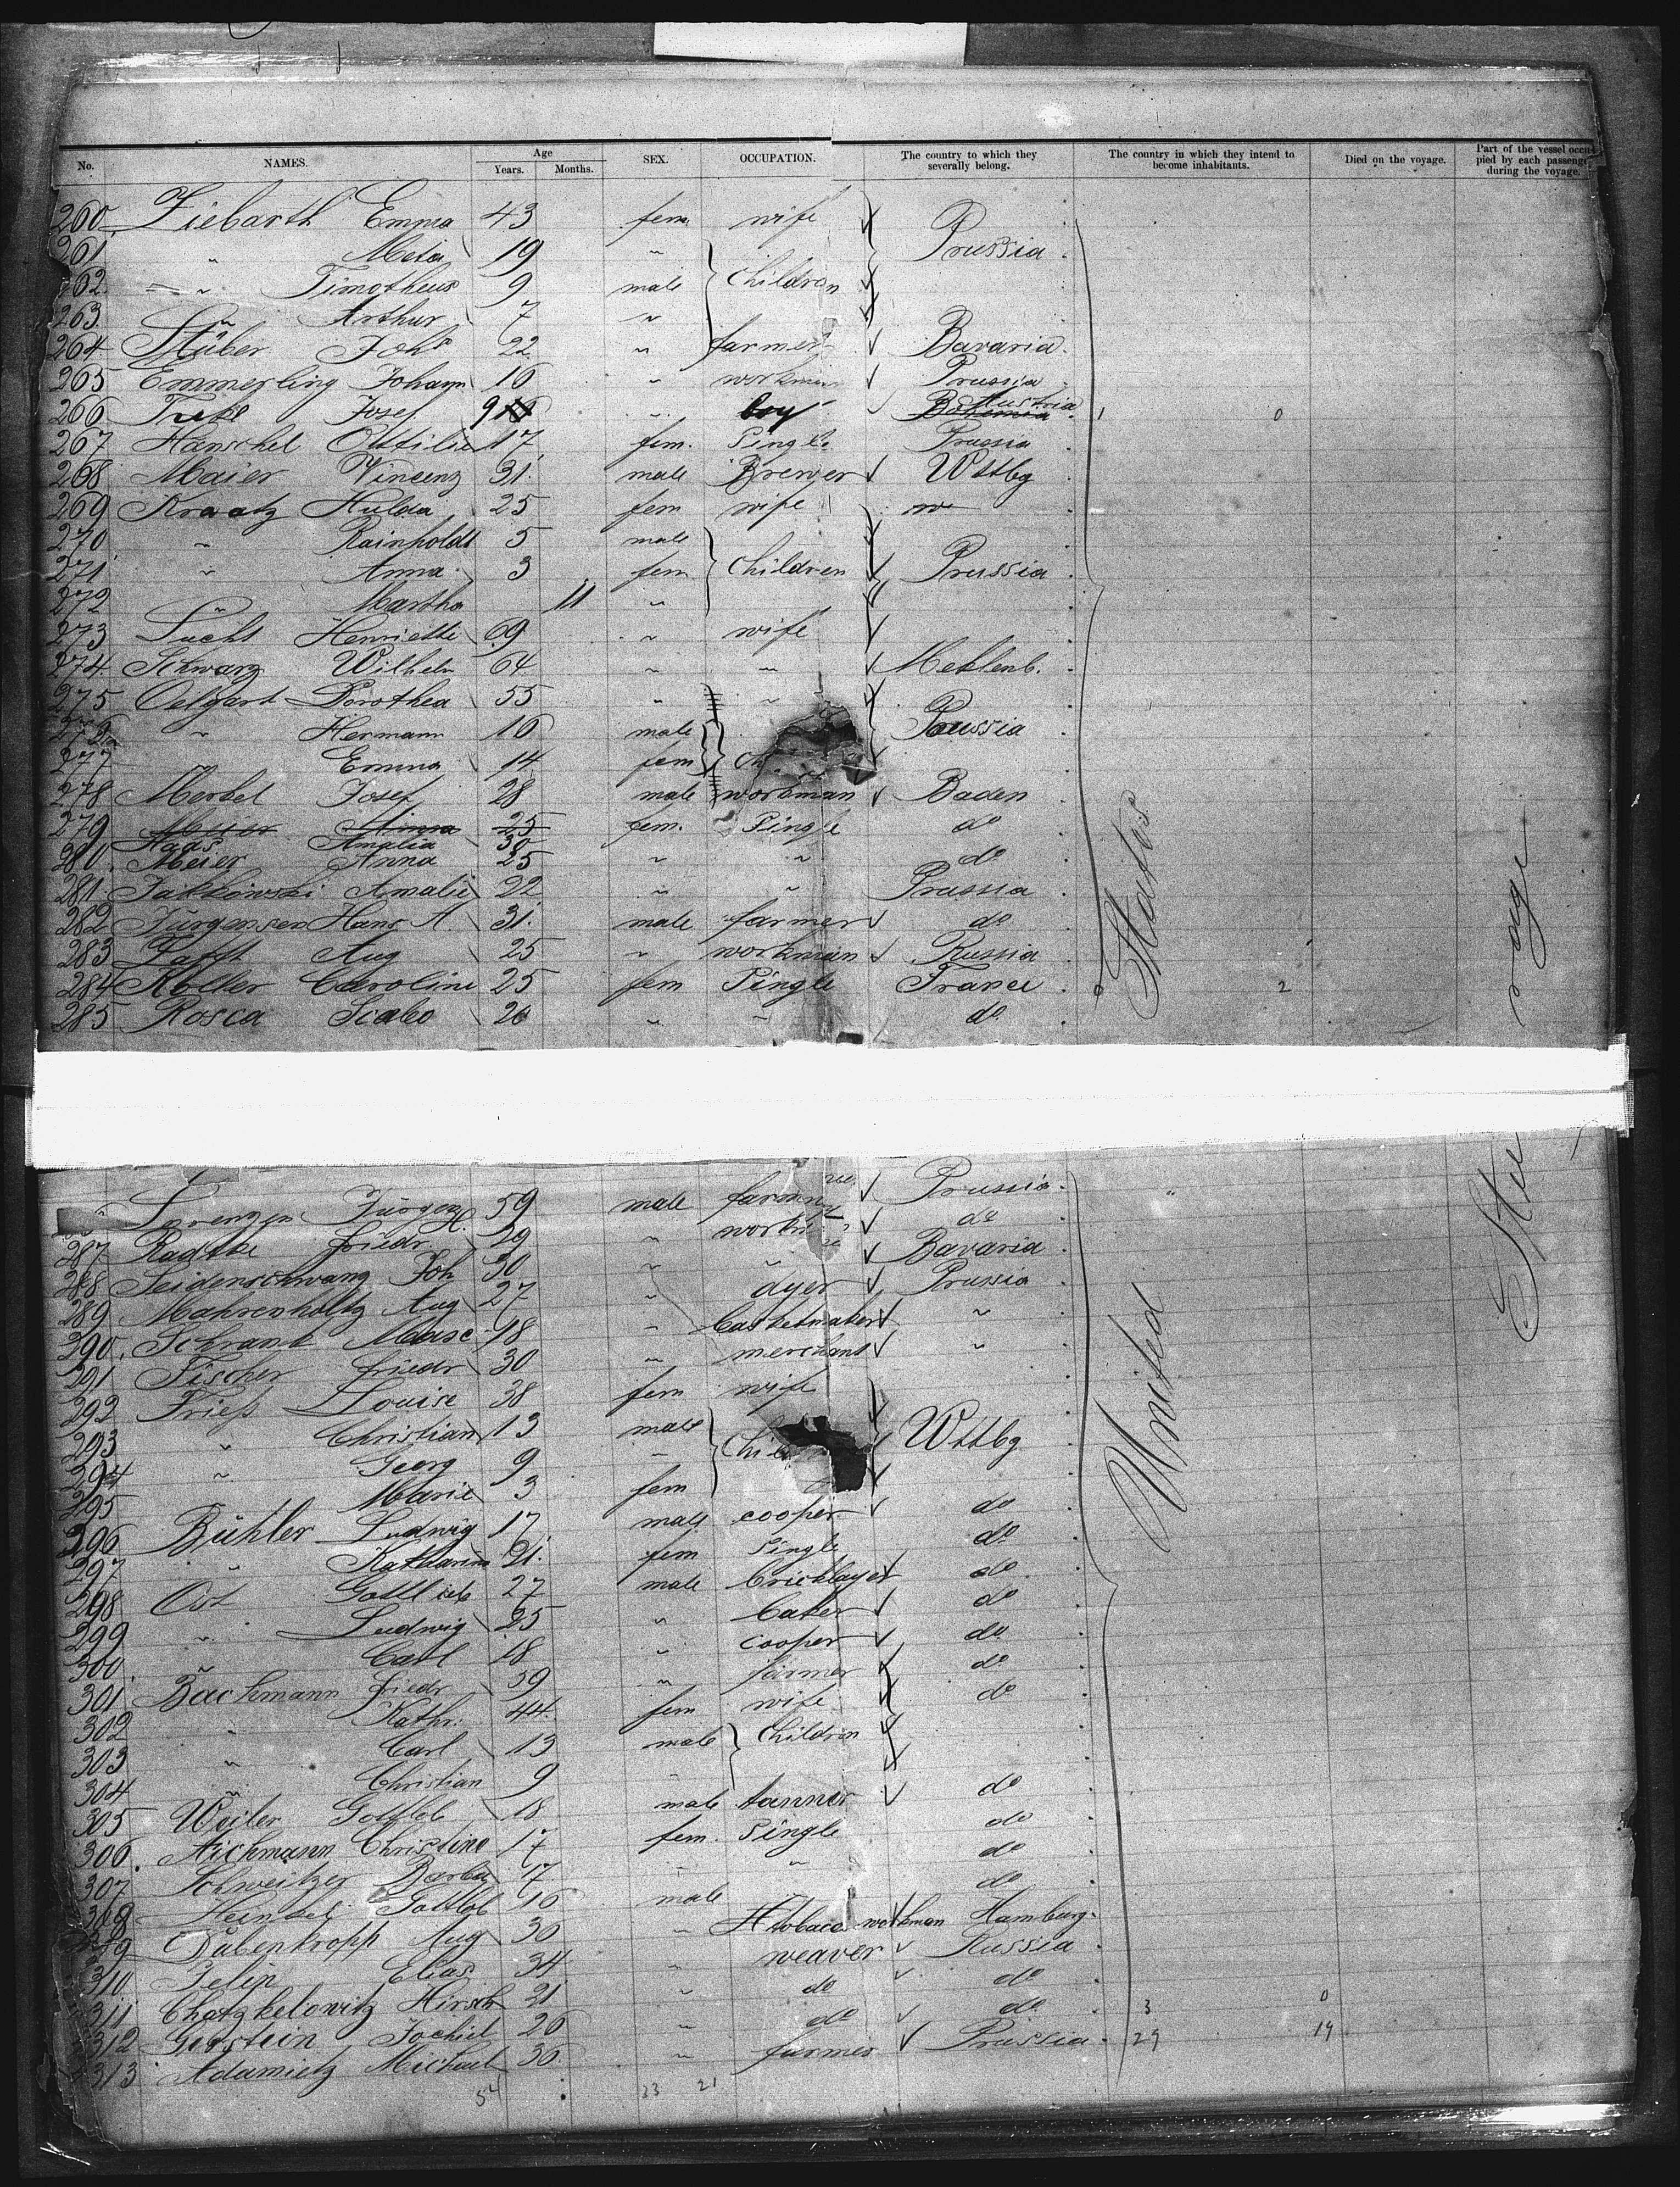 No. NAMES. Age Years. Months. SEX. OCCUPATION. The country to which they severally belong. The country in which they intend to become inhabitants. Died on the voyage. Part of the vessel occupied by each passenger during the voyage.
260 Ziebarth Emma 43 fem wife
261 " Meta 19 " Prussia
262. " Timotheus 9 male Children
263. " Arthur 7 "
264 Stüber Johs 22 " farmer Bavaria.
265 Emmerling Johann 16 " workman Prussia
266 Josef 9 " boy Bohemia Austria 1 0
267 Hanschel Ottilie 17 fem. Single Prussia
268 Maier Vincenz 31. male Brewer Wttbg
269 Kraatz Hulda 25 fem wife
270 " Rainholdt 5 male
271 " Anna 3 fem Children Prussia
272 " Martha 11 "
273 Henriette 69 " wife
274. Schwarz Wilhelm 64 " " Meklenb.
275 Dorothea 55 " "
276 " Hermann 16 male Prussia
277 " Emma 14 fem Ch
278 Mertel Josef 28 male workman Baden
279 Meier Anna 25 fem. Single do
Haas Amalia 30
280. Meier Anna 25 " " do
281. Jakkowski Amalie 22 " " Prussia
282 Jürgensen Hans A. 31. male farmer do
283 Aug 25 " workman Russia
284 Koller Caroline 25 fem Single France 0 2
285 Rosca Scabo 26 " " do
States
rage
Lorenzen Jürgen H. 59 male farmer Prussia
287 Radtke friedr. 29 " work do
288 Seidenschwanz Joh 30 " " Bavaria
289 Mahrenholtz Aug 27 " dyer Prussia
290. Schrank 18 " basketmaker "
291 Fischer friedr 30 " merchant "
292 Frieß Louise 38 fem wife
293 " Christian 13 male Chil Wttbg
294 " Georg 9 "
295 Marie 3 fem
296 Bühler Ludwig 17 male cooper do
297 " Katharina 21. fem Single do
298 Ost Gottlieb 27 male bricklayer do
299 " Ludwig 25 " baker do
300. " Carl 18 " cooper do
301. Bachmann friedr 59 " farmer do
302 " Kathr. 44. fem wife do
303 " Carl 13 male Children
304 " Christian 9
305 Weiler Gottlob 18 male tanner do
306. Aichmann Christine 17 fem. Single do
307 Schweitzer Barba 17 " " do
308 Henkel Gottlob 16 male do
309 Dübenkropp Aug 30 " tobaco workman Hamburg.
310 Elias 34 " weaver Russia
311 Chatzkelowitz Hirsch 21 " do do
312 Gerstein Jochiel 26 " do do 3 0
313 Adamietz Michael 30. " farmer Prussia 29 19
54 23 21
United
Stee